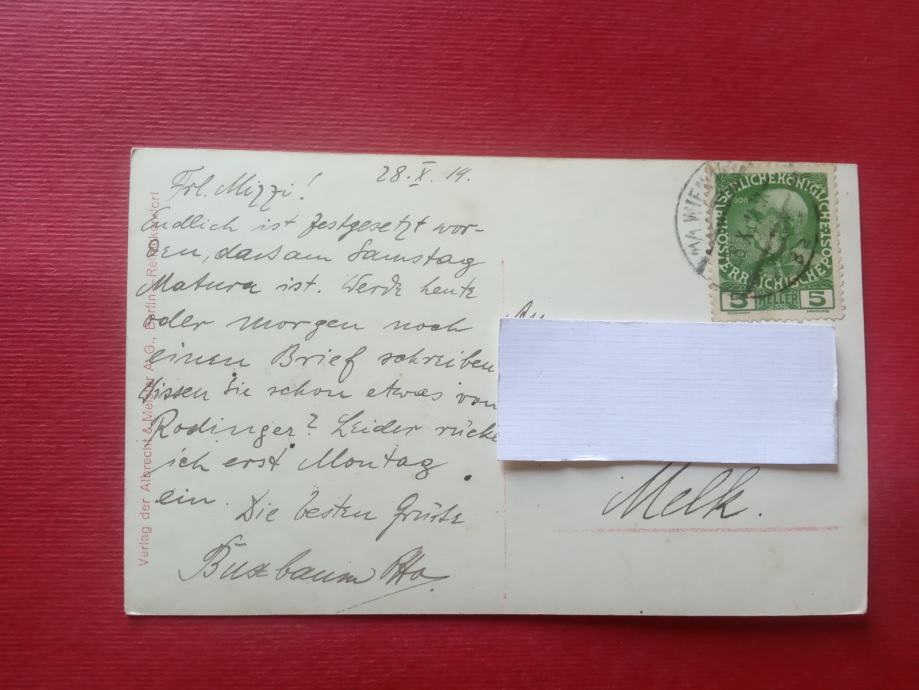 28. X. 14.
Frl. Mizzi!
Endlich ist festgesetzt wor-
den, dass am Samstag
Matura ist. Werde heute
oder morgen noch
einen Brief schreiben
Wissen Sie schon etwas von
Rodinger? Leider rücke
ich erst Montag
ein.
Die besten Grüsse
Buxbaum Otto
An
Melk.
Verlag der Albrecht & Meister A.G., Berlin - Reinickendorf
WIEN
KAISERLICHE KÖNIGLICHE
ÖSTERREICHISCHE POST
5 HELLER 5